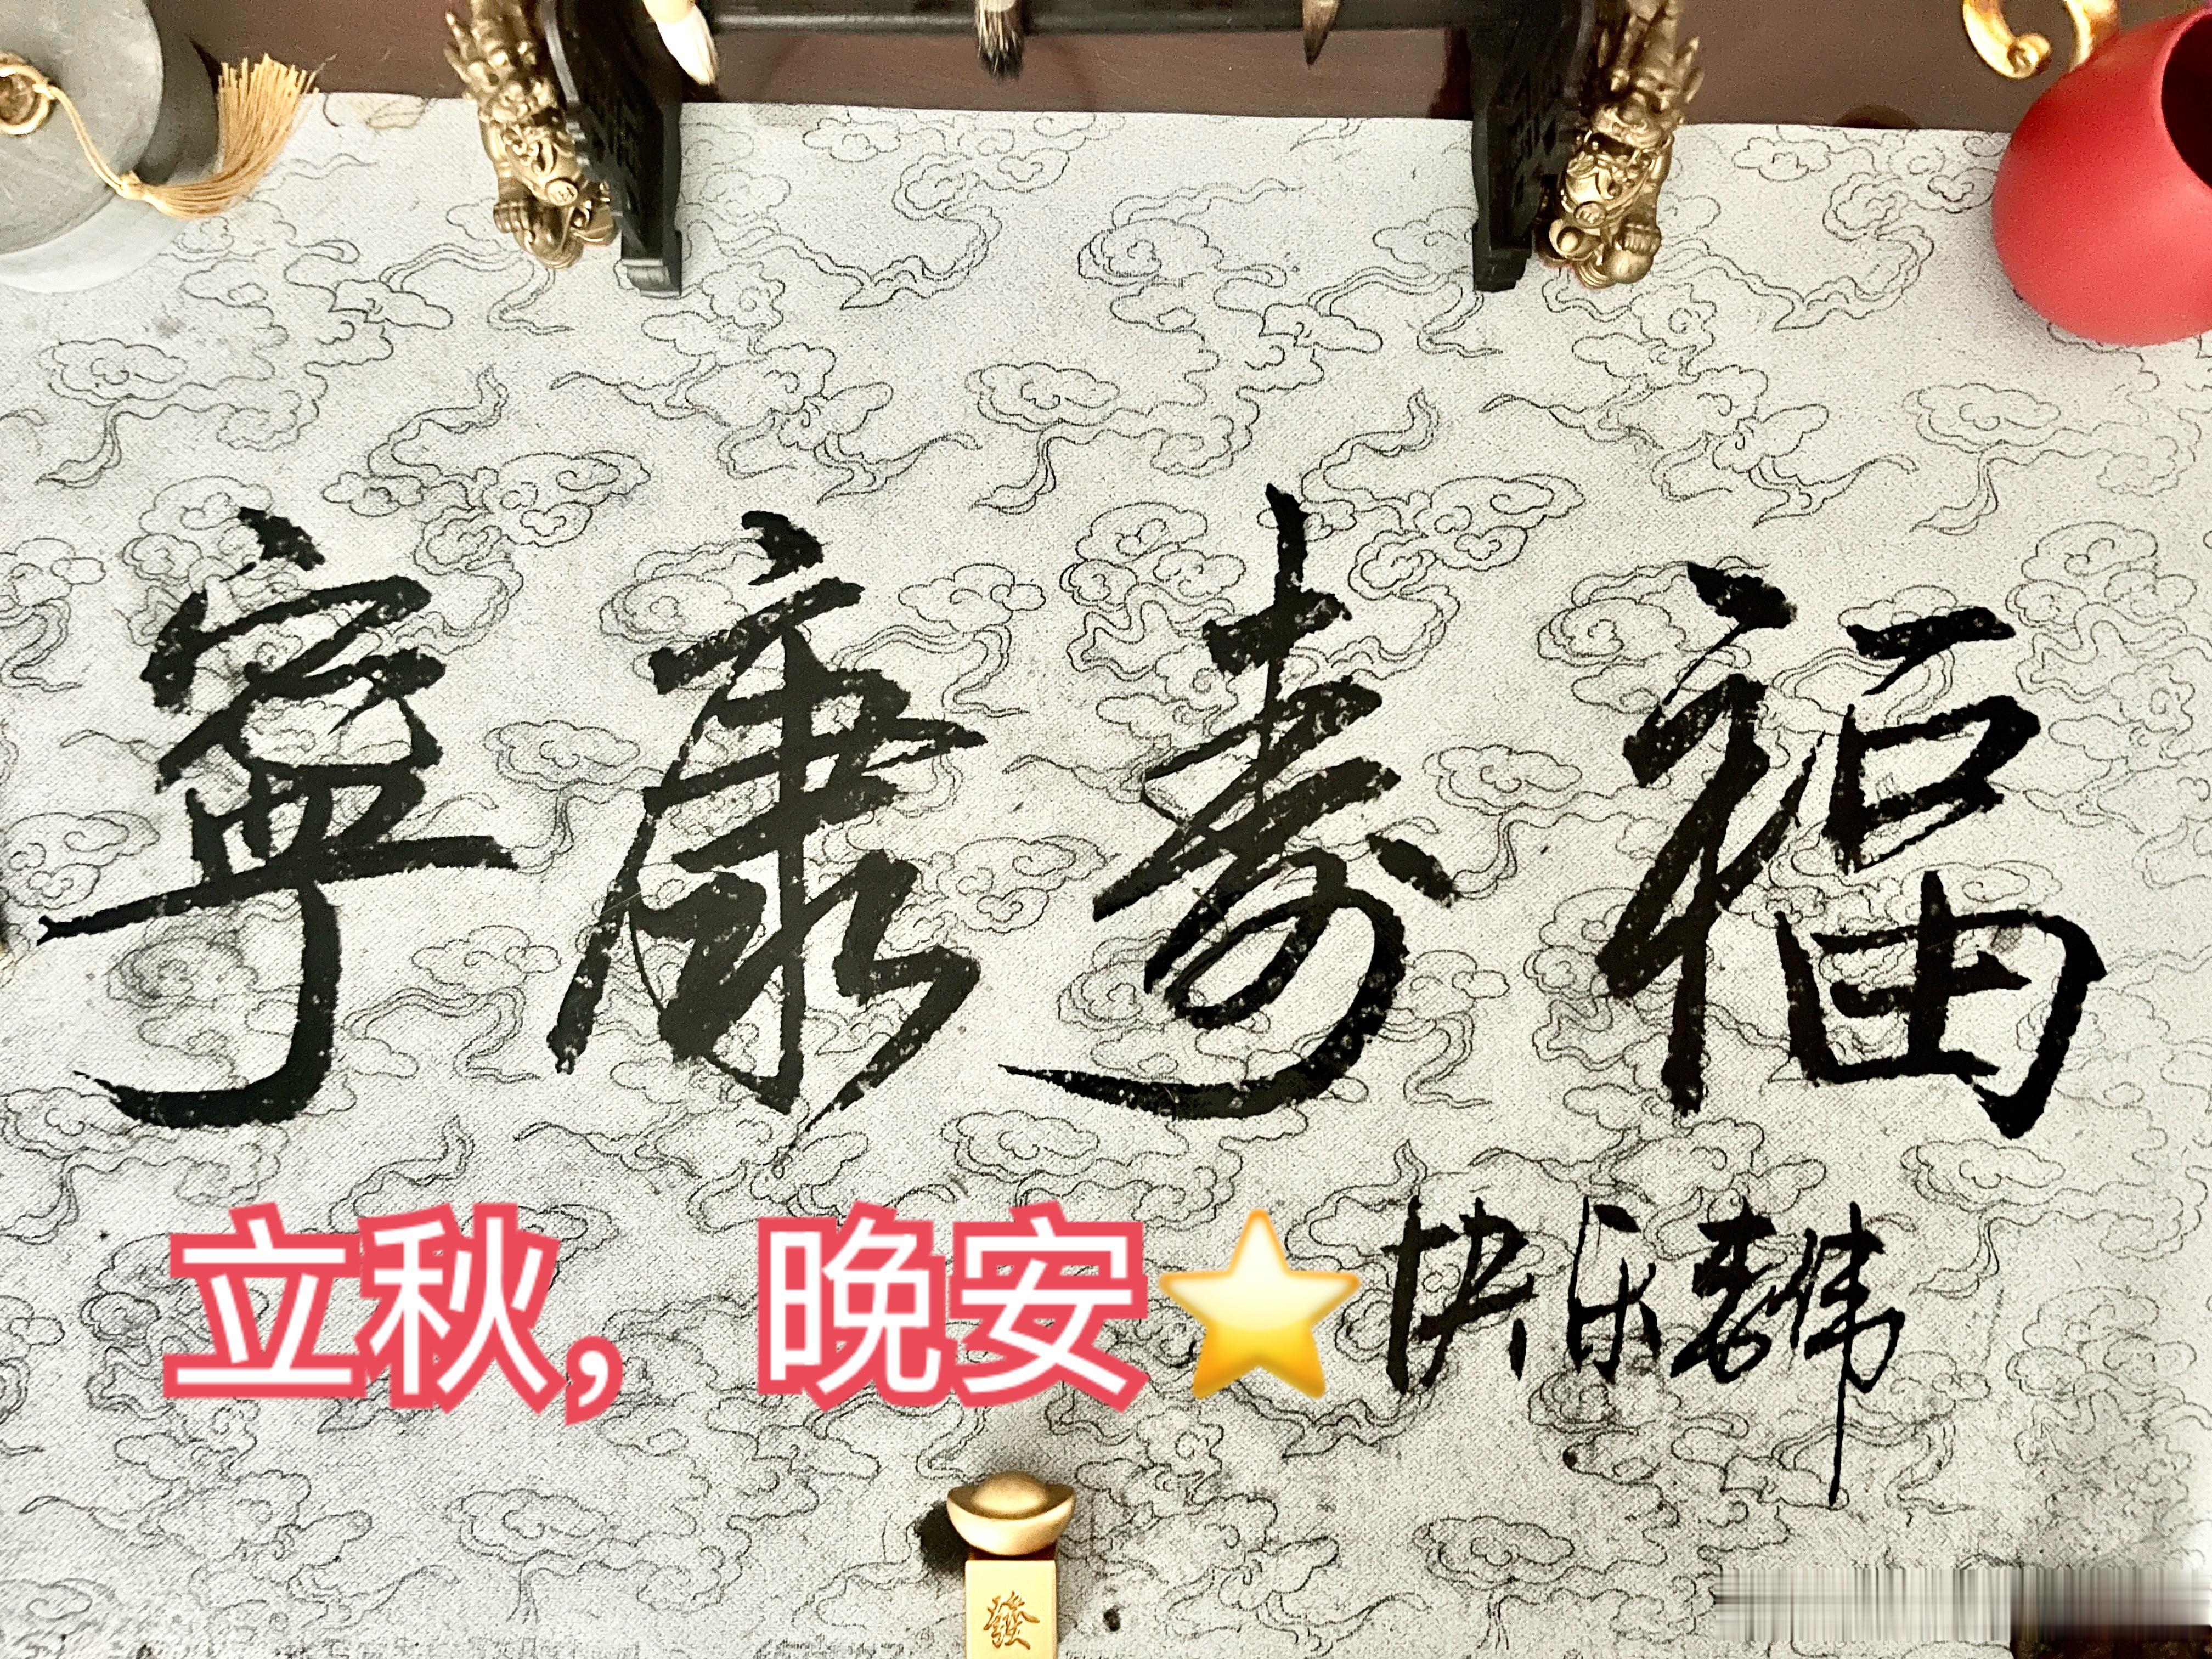 福寿康寧
快乐李伟
立秋，晚安⭐
發